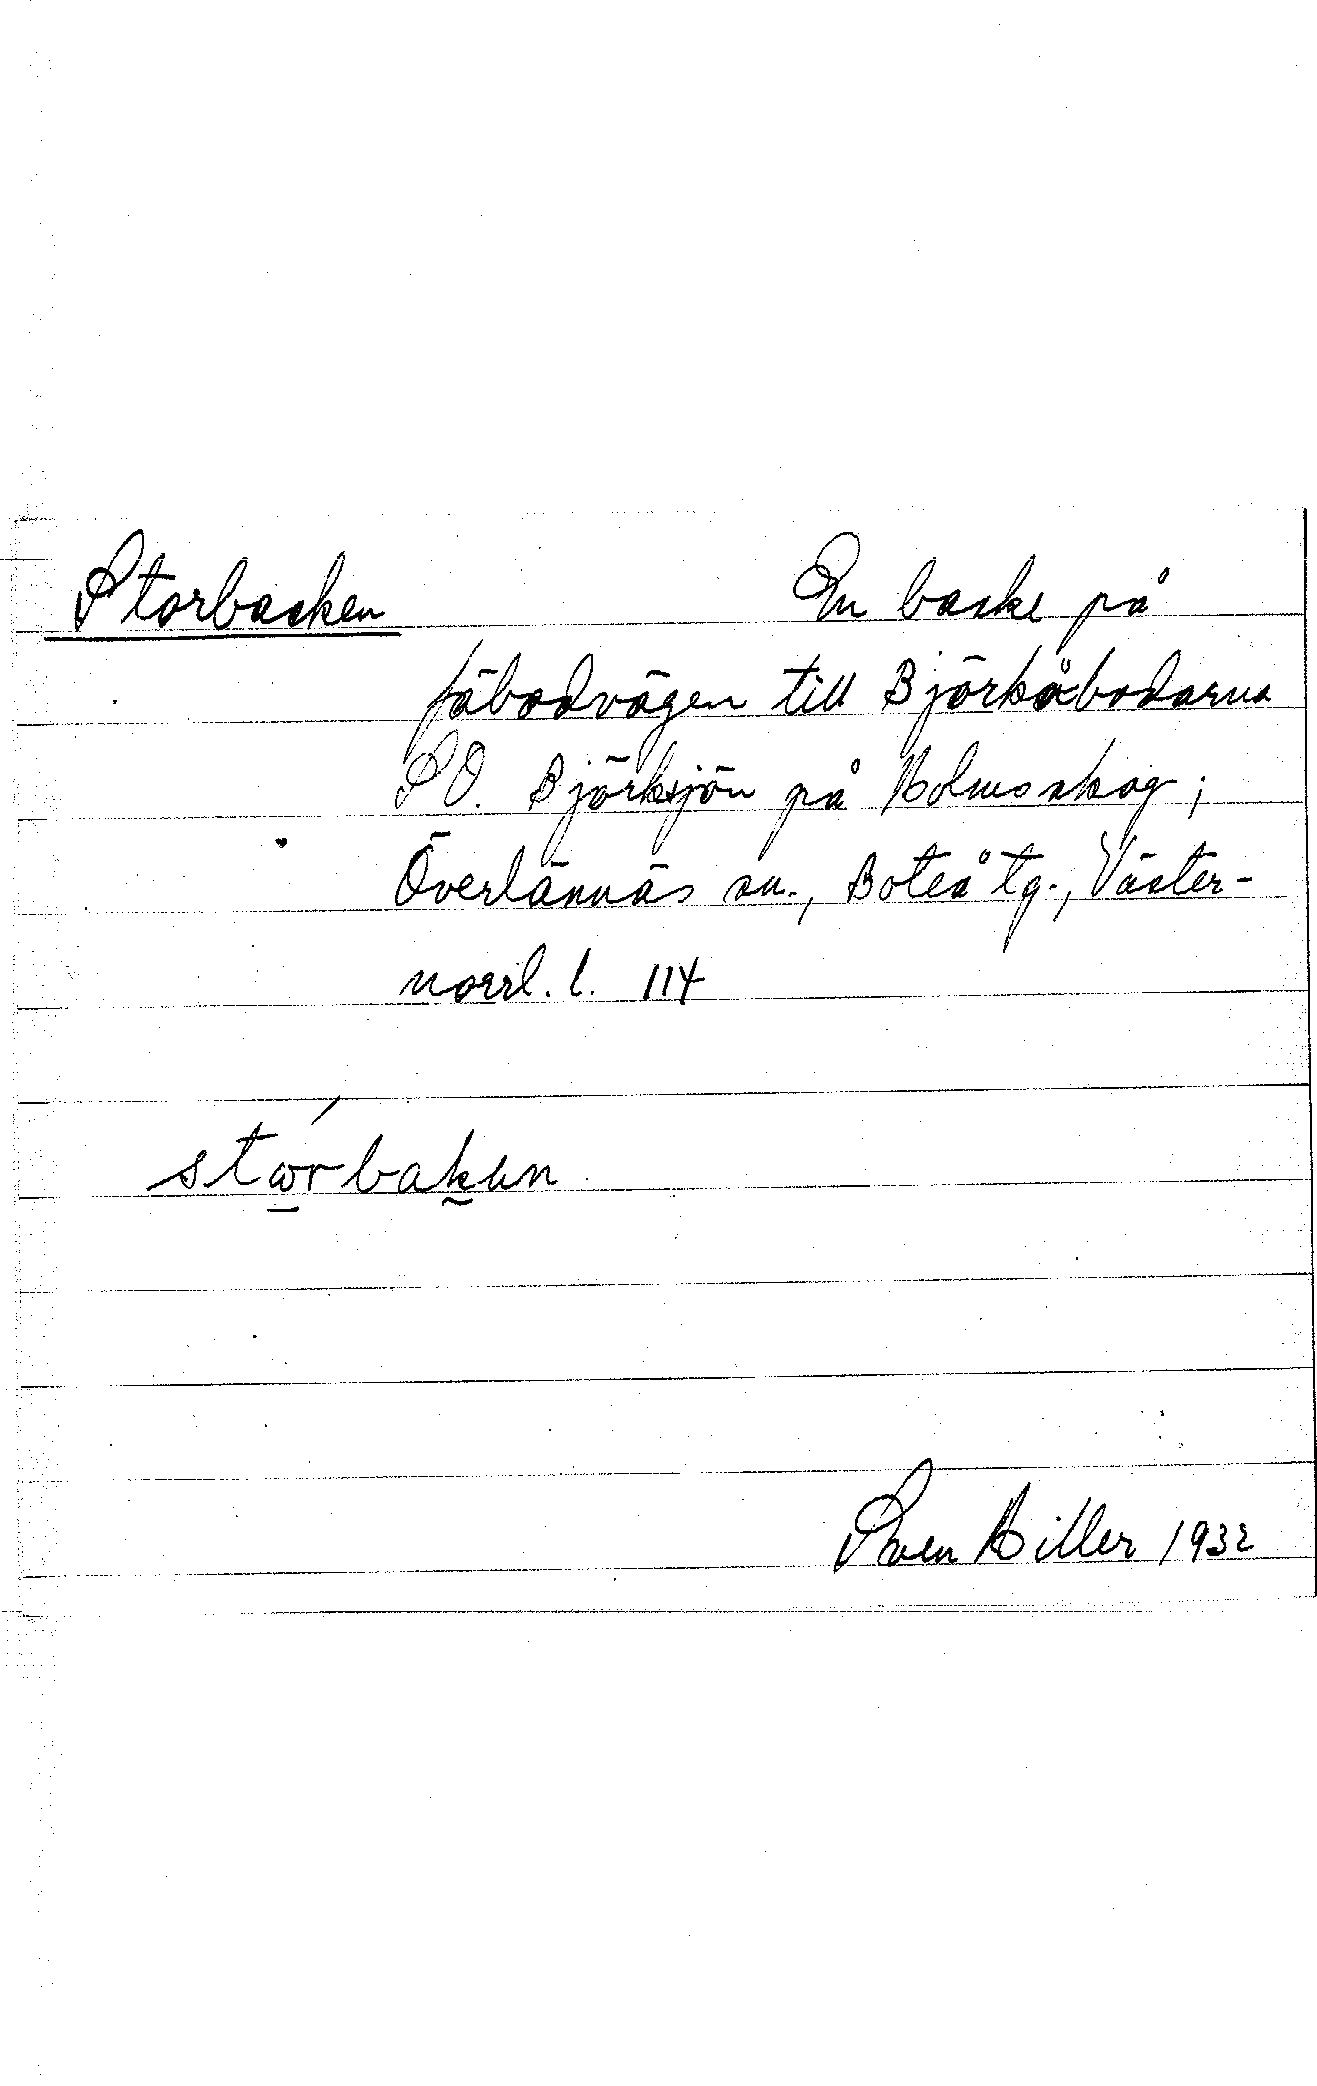 Storbacken En backe på
fäbodvägen till Björkåbodarna
SO. Björksjön på Holmskog;
Överlännäs sn., Boteå tg., Väster-
norrl. l. 114
stωŕbakɛn
Sven Hiller 1932